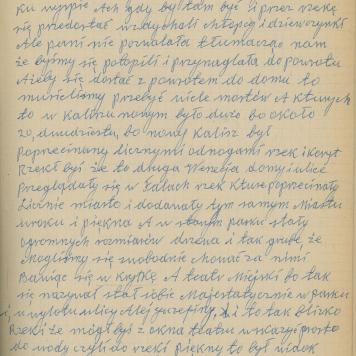 ku wyspie Ach gdy był tam być i przez rzekę
się przedostać wzdychali chłopcy i dziewczynki
Ale pani nie pozwalała tłumacząc nam
że byśmy się potopili i przynaglała do powrotu
Ażeby się dostać z powrotem do domu to
musieliśmy przebyć wiele mostów A których
to w Kaliszu nowym było dużo bo około
20, dwudziestu, bo nowy Kalisz był
poprzecinany licznymi odnogami rzek i koryt
Rzekł byś że to druga Wenecja domy i ulice
przeglądały się w falach rzek które poprzecinały
Licznie miasto i dodawały tym samym Miastu
uroku i piękna A w starym parku stały
ogromnych rozmiarów drzewa i tak grube, że
mogliśmy się swobodnie chować za nimi
Bawiąc się w krytkę A teatr Miejski bo tak
się nazywał stał sobie Majestatycznie w parku
u wylotu ulicy Alej Juzefiny, i to tak blisko
Rzeki że mógł byś z okna teatru wskoczyć prosto
do wody czyli do rzeki piękny to był widok